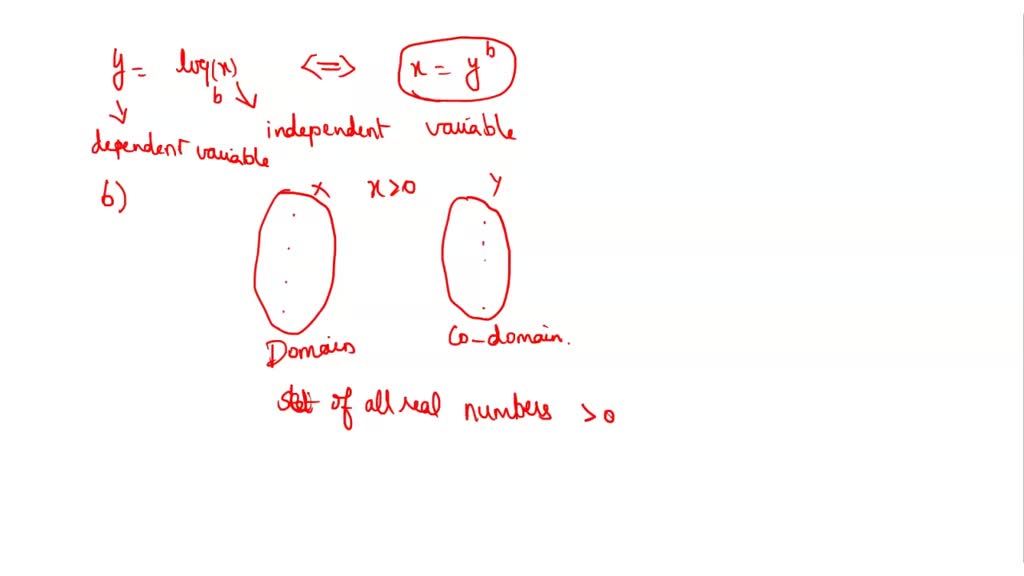 y = log_b(x) <=> x = y^b
independent variable
dependent variable
b)
X x>0 Y
Domain
Co-domain.
set of all real numbers >0